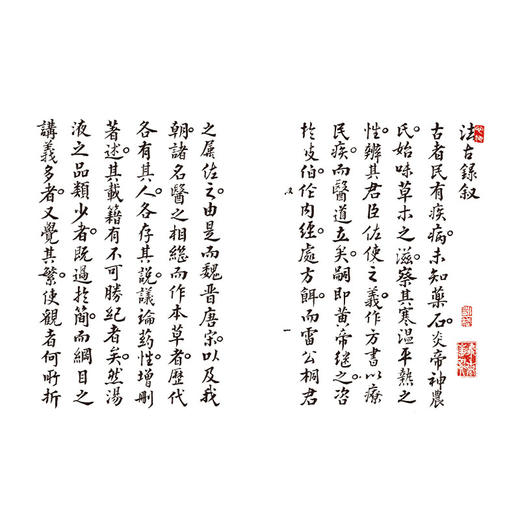 法古錄叙
古者民有疾病。未知藥石。炎帝神農
氏。始味草木之滋。察其寒温平熱之
性。辨其君臣佐使之義。作方書以療
民疾。而醫道立矣。嗣即黃帝继之。咨
扵岐伯。作内經。處方餌。而雷公桐君
一
之屬佐之。由是而魏晋唐宗。以及我
朝。諸名醫之相繼而作本草者。歷代
各有其人。各存其說。議論葯性。增刪
著述。其載籍有不可勝紀者矣。然湯
液之品類少者。既過扵簡。而綱目之
講義多者。又覺其繁。使觀者何所折